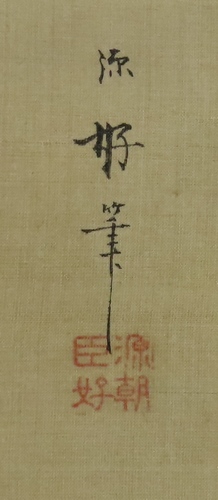 源
好
筆
源朝
臣好